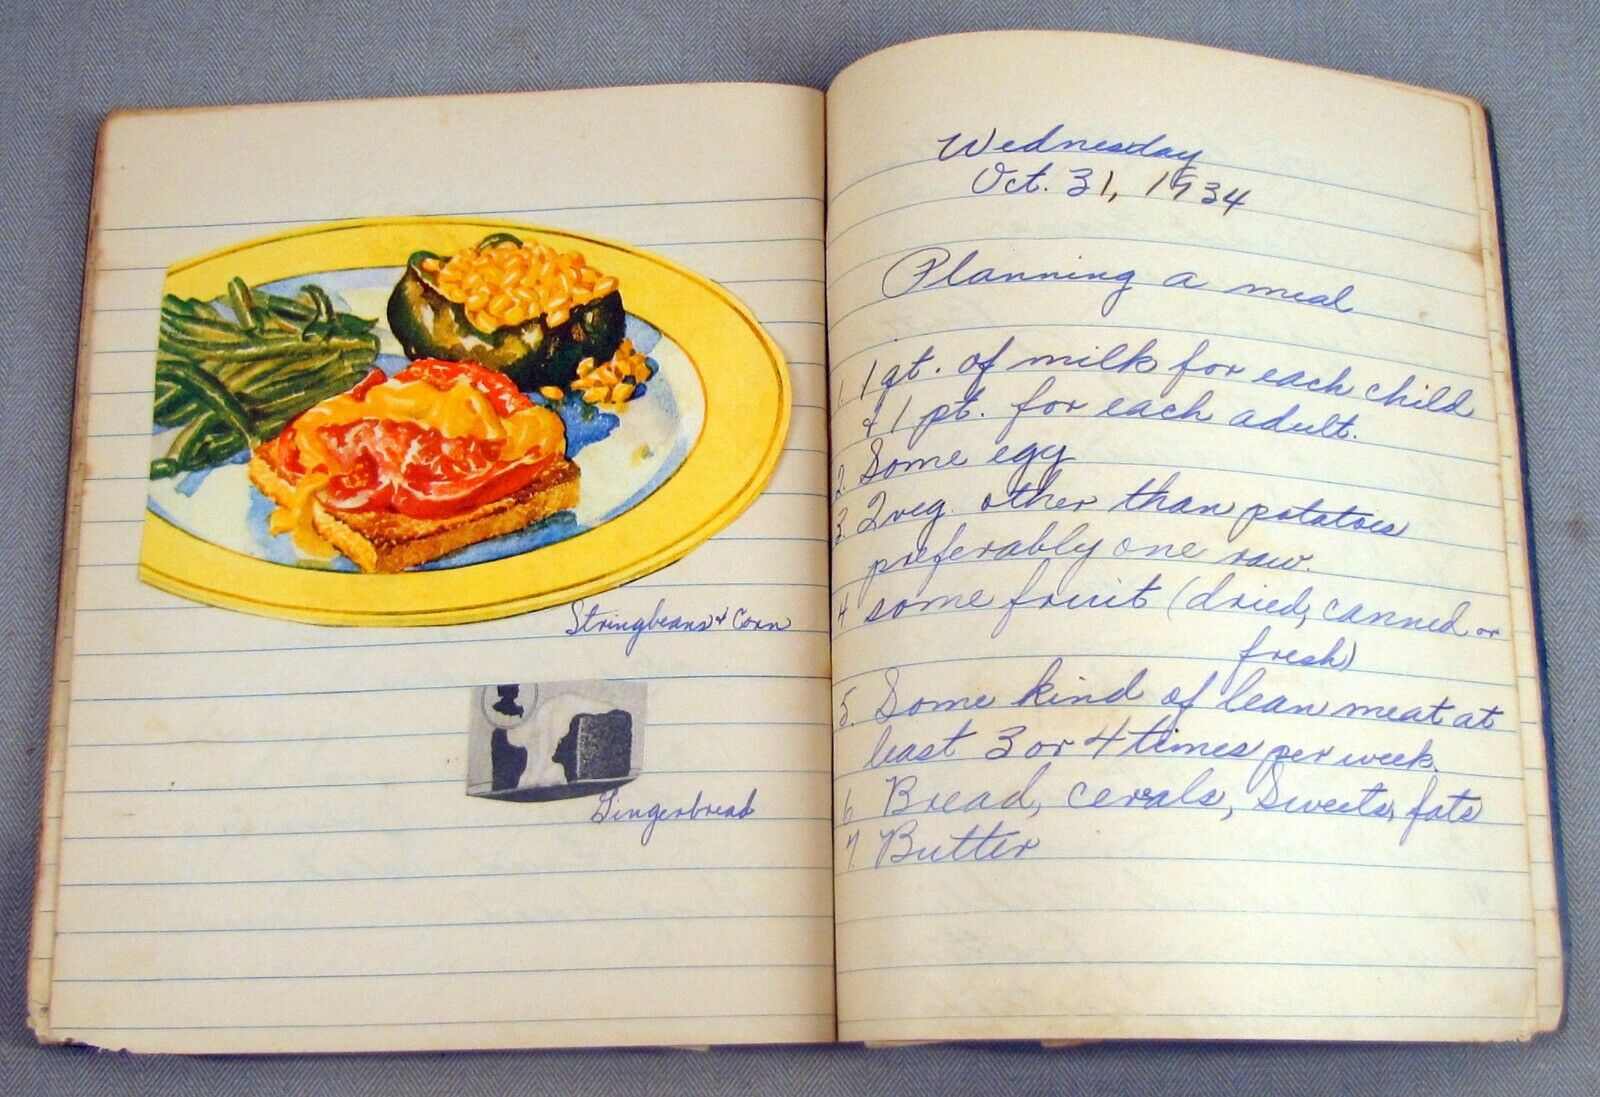 Stringbeans & Corn
Gingerbread
Wednesday
Oct. 31, 1934
Planning a meal
1. 1 qt. of milk for each child
& 1 pt. for each adult.
2. Some egg
3. 2 veg. other than potatoes
preferably one raw.
4 some fruit (dried, canned or
fresh)
5. Some kind of lean meat at
least 3 or 4 times per week.
6 Bread, cerals, Sweets, fats
7. Butter